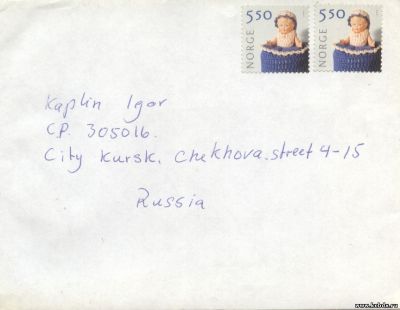 5.50 5.50
NORGE NORGE
Kaplin Igor
C.P. 305016.
City Kursk. Chekhova.street 4-15
Russia
www.kxbdx.ru